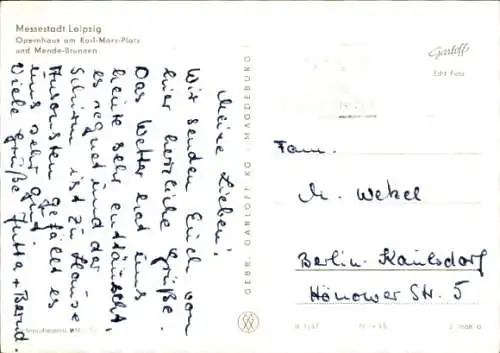 Messestadt Leipzig
Opernhaus am Karl-Marx-Platz
und Mende-Brunnen
Meine Lieben!
Wir senden Euch von
hier herzliche Grüße.
Das Wetter hat uns
heute sehr enttäuscht,
es regnet und der
Schirm ist zu Hause
Ansonsten gefällt es
uns sehr gut.
Viele Grüße Jutta + Bernd.
GEBR. GARLOFF KG · MAGDEBURG
Garloff
Echt Foto
Fam.
M. Wekel
Berlin-Kaulsdorf
Hönower Str. 5